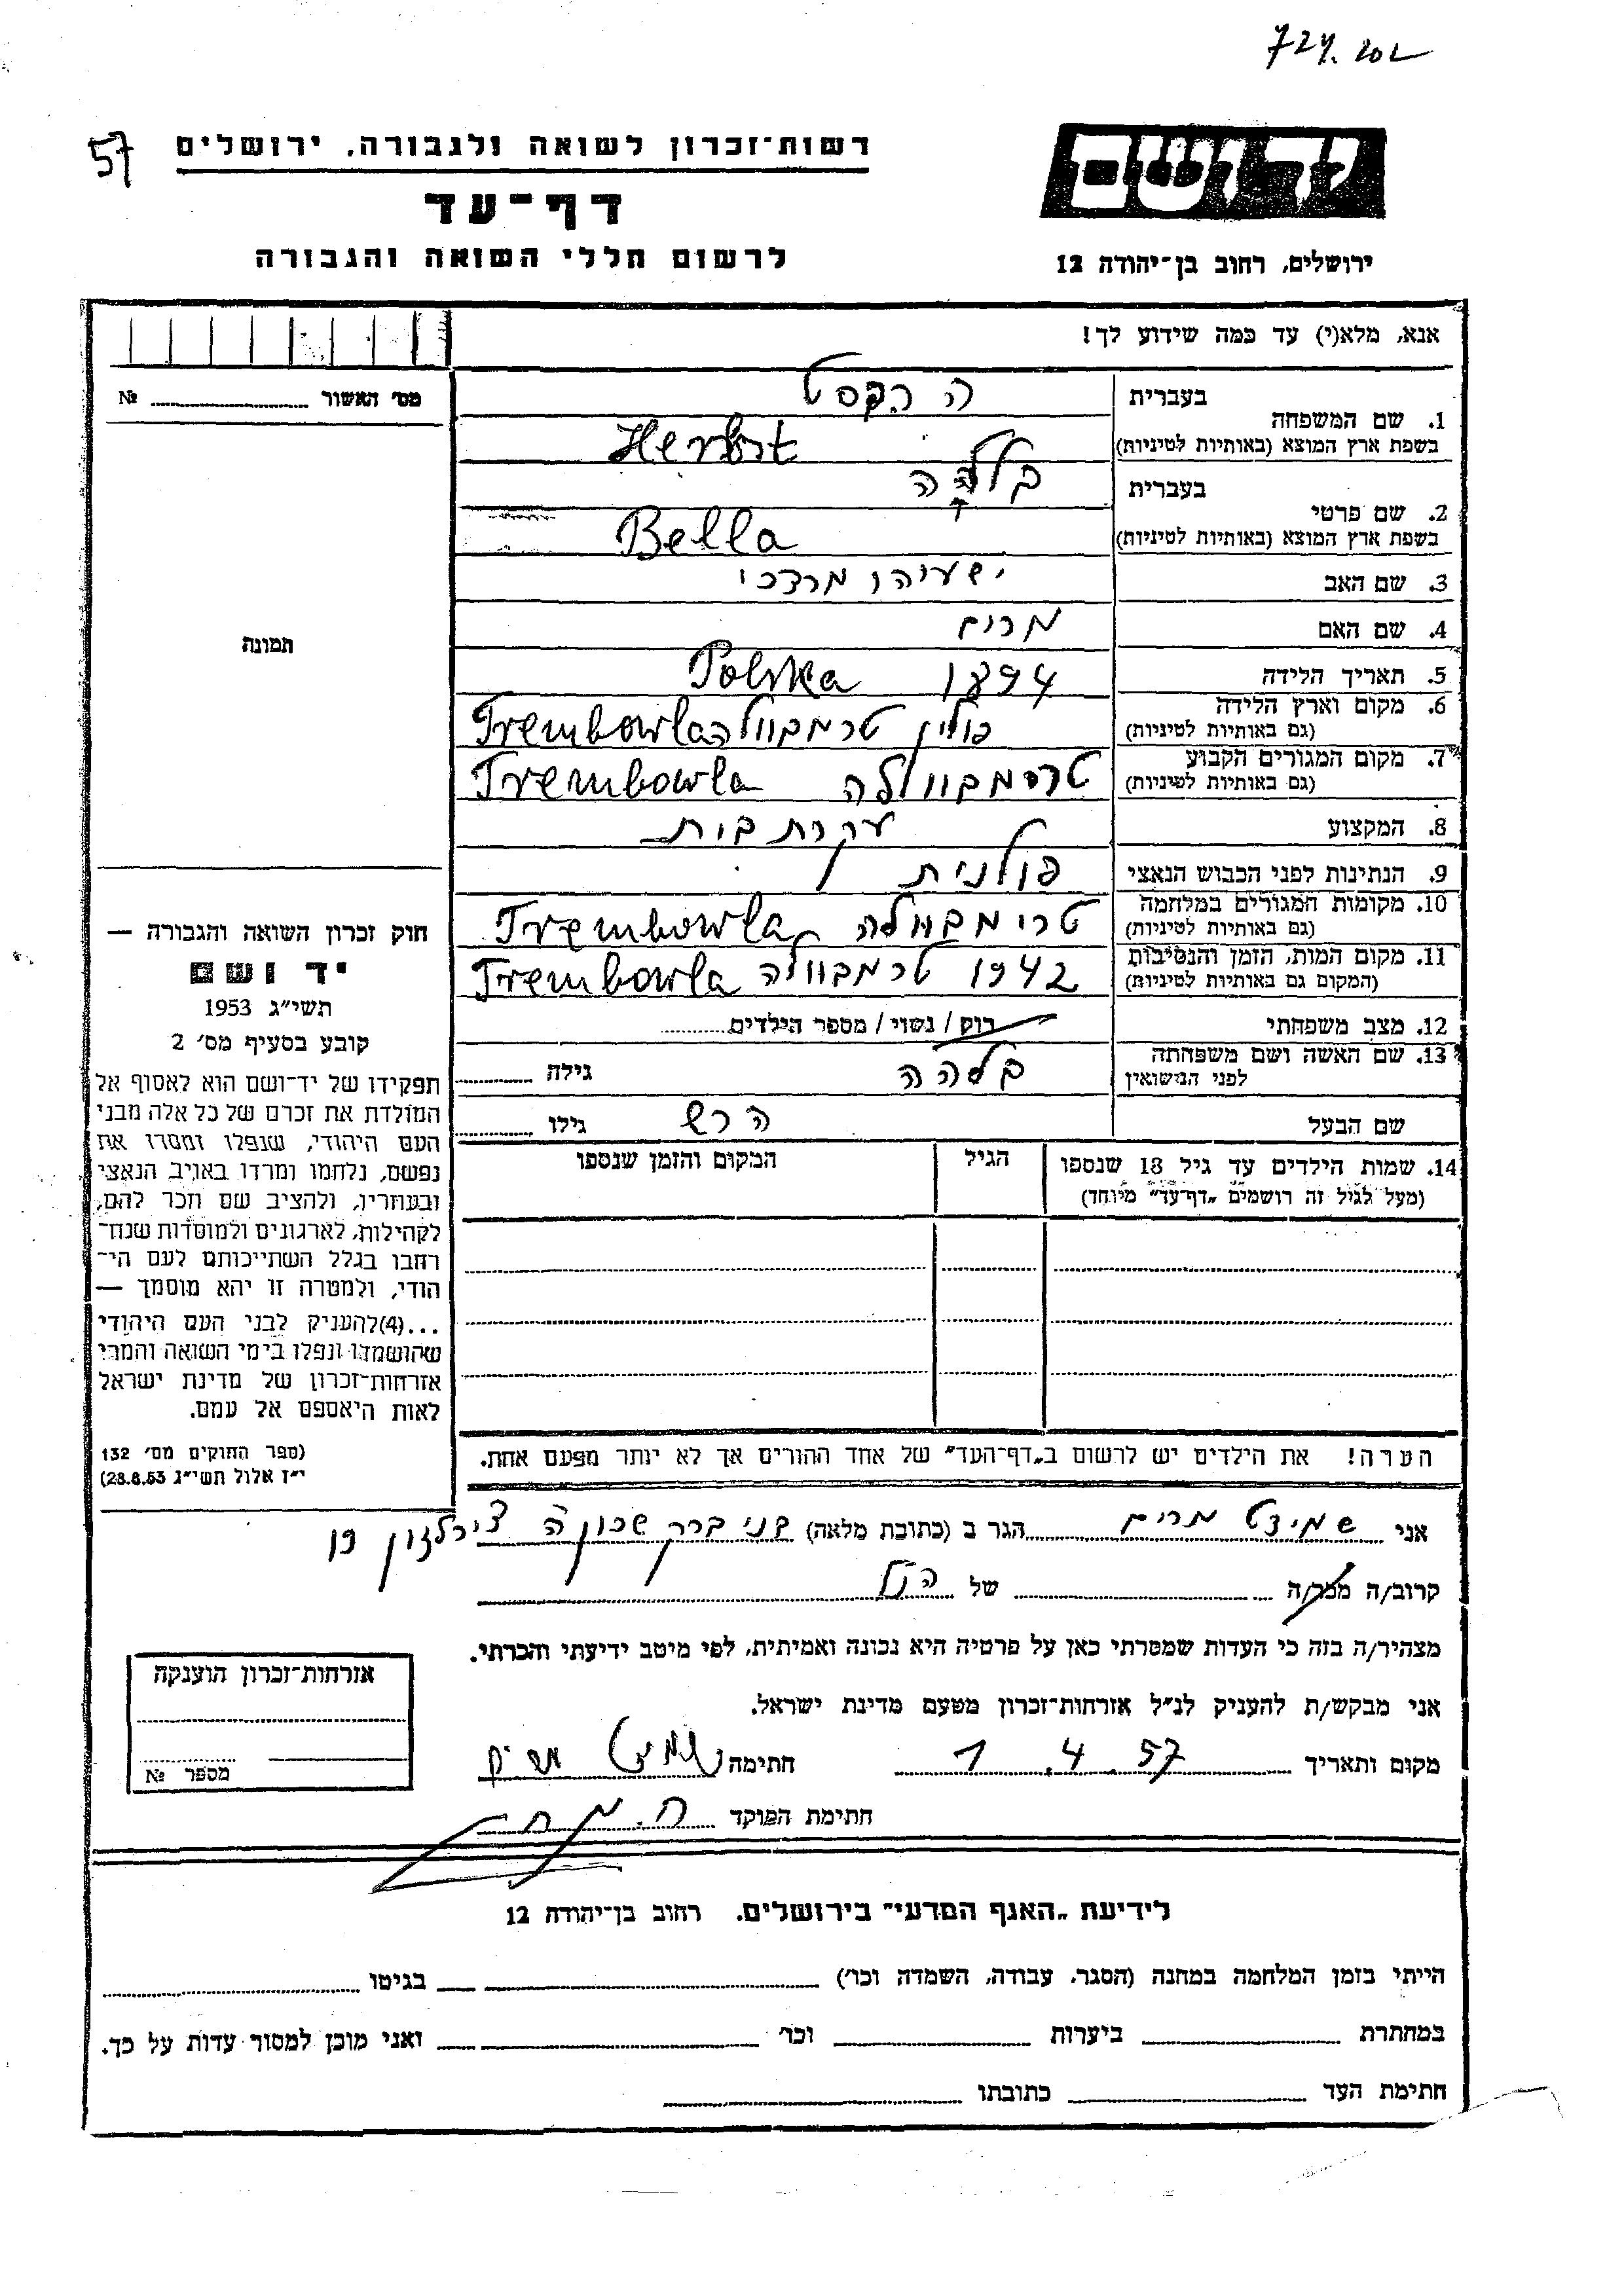 57
רשות־זכרון לשואה ולגבורה, ירושלים
דף־עד
לרשום חללי השואה והגבורה
יד ושם
ירושלים, רחוב בן־יהודה 12
אנא, מלא(י) עד כמה שידוע לך!
מס׳ האשור № 
1. שם המשפחה
בעברית
בשפת ארץ המוצא (באותיות לטיניות)
2. שם פרטי
בעברית
בשפת ארץ המוצא (באותיות לטיניות) Bella
3. שם האב ישעיהו מרדכי
4. שם האם מרים
5. תאריך הלידה 1894 Polska
6. מקום וארץ הלידה
(גם באותיות לטיניות) פולין טרמבוולה Trembowla
7. מקום המגורים הקבוע
(גם באותיות לטיניות) טרימבוולה Trembowla
8. המקצוע עקרת בית
9. הנתינות לפני הכבוש הנאצי פולנית
10. מקומות המגורים במלחמה
(גם באותיות לטיניות) טרימבוולה Trembowla
11. מקום המות, הזמן והנסיבות
(המקום גם באותיות לטיניות) 1942 טרמבוולה Trembowla
12. מצב משפחתי רוק / נשוי / מספר הילדים
13. שם האשה ושם משפחתה
לפני הנישואין בלהה גילה
שם הבעל הרש גילו
14. שמות הילדים עד גיל 18 שנספו
(מעל לגיל זה רושמים „דף־עד” מיוחד)
הגיל
המקום והזמן שנספו
הערה! את הילדים יש לרשום ב„דף־העד” של אחד ההורים אך לא יותר מפעם אחת.
תמונה
חוק זכרון השואה והגבורה —
יד ושם
תשי״ג 1953
קובע בסעיף מס׳ 2
תפקידו של יד־ושם הוא לאסוף אל
המולדת את זכרם של כל אלה מבני
העם היהודי, שנפלו ומסרו את
נפשם, נלחמו ומרדו באויב הנאצי
ובעוזריו, ולהציב שם וזכר להם,
לקהילות, לארגונים ולמוסדות שנח־
רבו בגלל השתייכותם לעם הי־
הודי, ולמטרה זו יהא מוסמך —
...(4)להעניק לבני העם היהודי
שהושמדו ונפלו בימי השואה והמרי
אזרחות־זכרון של מדינת ישראל
לאות היאספם אל עמם.
(ספר החוקים מס׳ 132
י״ז אלול תשי״ג 28.8.53)
אני שמידט מרים הגר ב (כתובת מלאה) בני ברק שכון ה
קרוב/ה מכר/ה של הנ״ל
מצהיר/ה בזה כי העדות שמסרתי כאן על פרטיה היא נכונה ואמיתית, לפי מיטב ידיעתי והכרתי.
אני מבקש/ת להעניק לנ״ל אזרחות־זכרון מטעם מדינת ישראל.
מקום ותאריך 1.4.57 חתימה
חתימת הפוקד
אזרחות־זכרון הוענקה
מספר №
לידיעת „האגף המדעי” בירושלים, רחוב בן־יהודה 12
הייתי בזמן המלחמה במחנה (הסגר, עבודה, השמדה וכו׳) בגיטו
במחתרת ביערות וכו׳ ואני מוכן למסור עדות על כך.
חתימת העד כתובתו